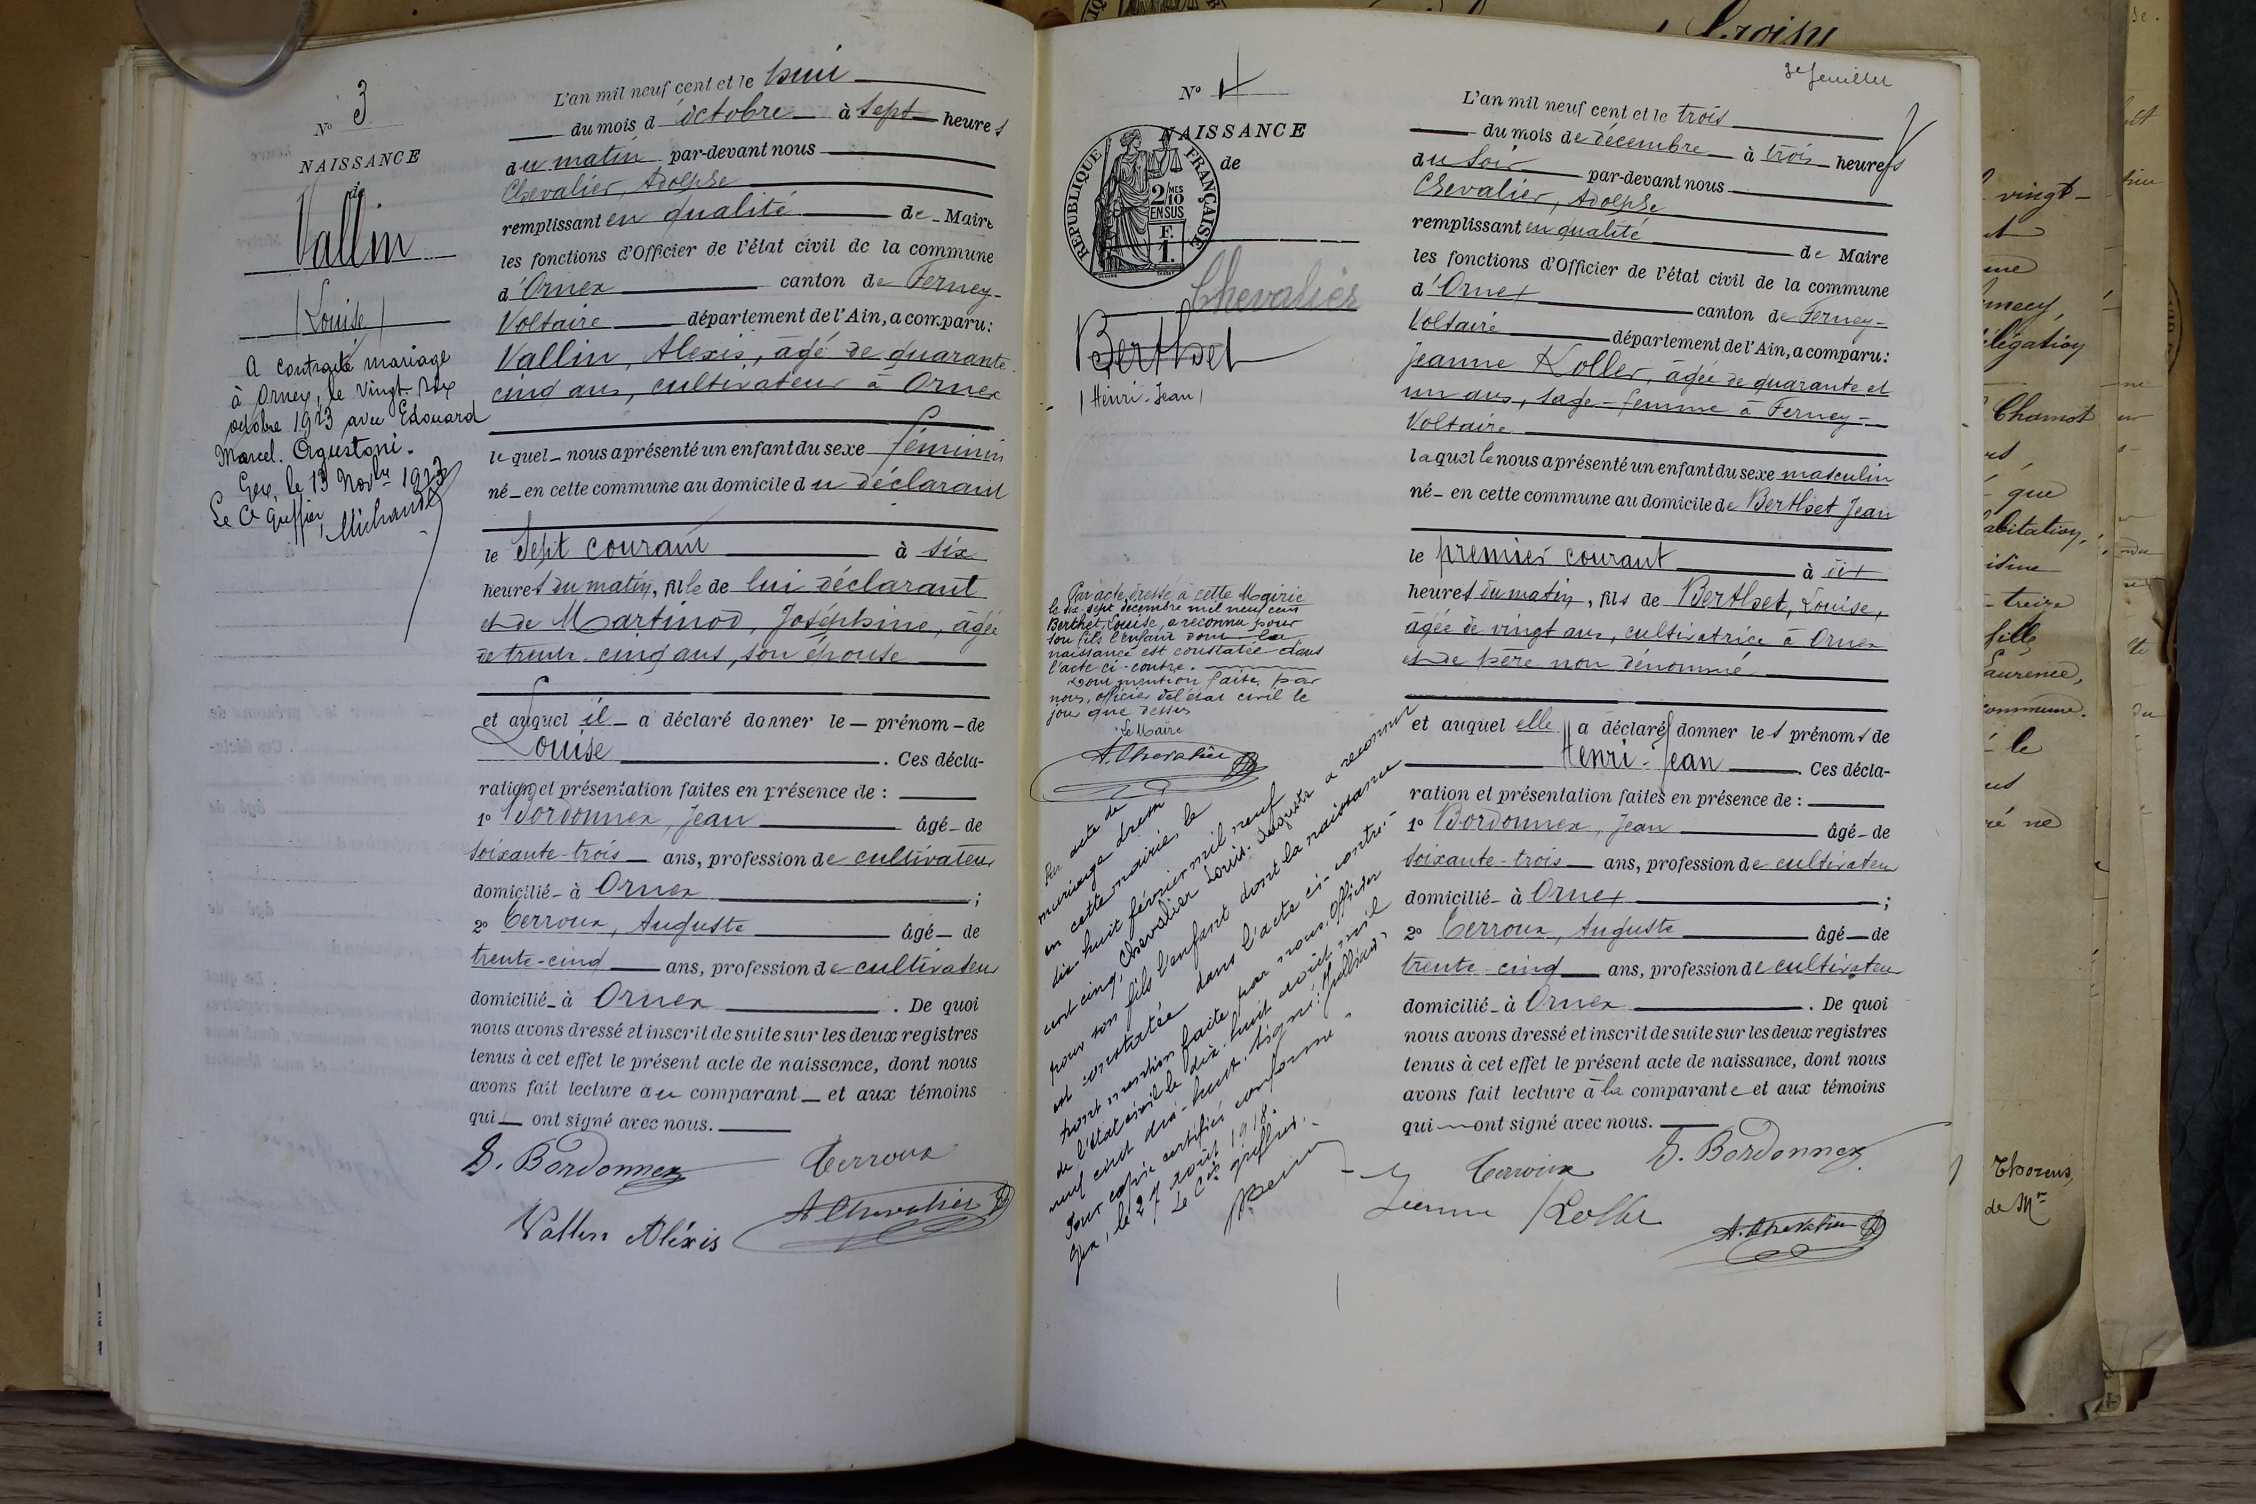 N° 3
NAISSANCE
de
Vallin
(Louise)
A contracté mariage
à Ornex, le vingt-
octobre 1923 avec Edouard
Marcel Agustoni.
Gex, le 13 Novbre 1923
Le Cis Greffier,
L'an mil neuf cent et le huit
du mois d'octobre à sept heures
du matin par-devant nous
Chevalier, Adolphe
remplissant en qualité de Maire
les fonctions d'Officier de l'état civil de la commune
d'Ornex canton de Ferney-
Voltaire département de l'Ain, a comparu:
Vallin, Alexis, âgé de quarante
cinq ans, cultivateur à Ornex
lequel nous a présenté un enfant du sexe féminin
né en cette commune au domicile du déclarant
le sept courant à six
heures du matin, fille de lui déclarant
et de Martinod, Joséphine, âgée
de trente-cinq ans, son épouse
et auquel il a déclaré donner le prénom de
Louise . Ces décla-
ration et présentation faites en présence de :
1° Bordonnex, Jean âgé de
soixante-trois ans, profession de cultivateur
domicilié à Ornex ;
2° Cerroux, Auguste âgé de
trente-cinq ans, profession de cultivateur
domicilié à Ornex . De quoi
nous avons dressé et inscrit de suite sur les deux registres
tenus à cet effet le présent acte de naissance, dont nous
avons fait lecture au comparant et aux témoins
qui ont signé avec nous.
Bordonnex Cerroux
Vallin Aléxis A. Chevalier
3e feuillet
N° 4
NAISSANCE
de
RÉPUBLIQUE FRANÇAISE
2 MES
10
EN SUS
F.
1.
Chevalier
Berthet
(Henri-Jean)
Par acte dressé à cette Mairie
le dix-sept décembre mil neuf cent
Berthet, Louise, a reconnu pour
son fils l'enfant dont la
naissance est constatée dans
l'acte ci-contre.
Dont mention faite par
nous, officier de l'état civil le
jour que dessus
Le Maire
A. Chevalier
Par acte de
mariage dressé
en cette mairie le
dix huit février mil neuf
cent cinq, Chevalier Louis-Auguste a reconnu
pour son fils l'enfant dont la naissance
est constatée dans l'acte ci-contre.-
Dont mention faite par nous, officier
de l'état civil le dix-huit août mil
neuf cent dix-huit. Signé:
Pour copie certifiée conforme.
Gex, le 27 août 1918.
Le Cis greffier.
L'an mil neuf cent et le trois
du mois de décembre à trois heures
du soir par-devant nous
Chevalier, Adolphe
remplissant en qualité de Maire
les fonctions d'Officier de l'état civil de la commune
d'Ornex canton de Ferney-
Voltaire département de l'Ain, a comparu:
Jeanne Koller, âgée de quarante et
un ans, sage-femme à Ferney-
Voltaire
laquelle nous a présenté un enfant du sexe masculin
né en cette commune au domicile de Berthet Jean
le premier courant à dix
heures du matin, fils de Berthet, Louise,
âgée de vingt ans, cultivatrice à Ornex
et de père non dénommé
et auquel elle a déclaré donner les prénoms de
Henri-Jean . Ces décla-
ration et présentation faites en présence de :
1° Bordonnex, Jean âgé de
soixante-trois ans, profession de cultivateur
domicilié à Ornex ;
2° Cerroux, Auguste âgé de
trente-cinq ans, profession de cultivateur
domicilié à Ornex . De quoi
nous avons dressé et inscrit de suite sur les deux registres
tenus à cet effet le présent acte de naissance, dont nous
avons fait lecture à la comparante et aux témoins
qui ont signé avec nous.
Cerroux Bordonnex
Jeanne Koller A. Chevalier
vingt-
Chamot
que
treize
fille
Laurence,
commune.
le
né
Thorens,
de Mr